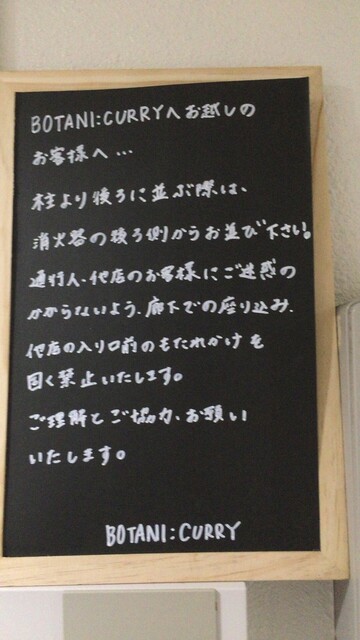 BOTANI:CURRYへお越しの
お客様へ…
柱より後ろに並ぶ際は、
消火器の後ろ側からお並び下さい。
通行人、他店のお客様にご迷惑の
かからないよう、廊下での座り込み、
他店の入り口前のもたれかけを
固く禁止いたします。
ご理解とご協力、お願い
いたします。
BOTANI:CURRY